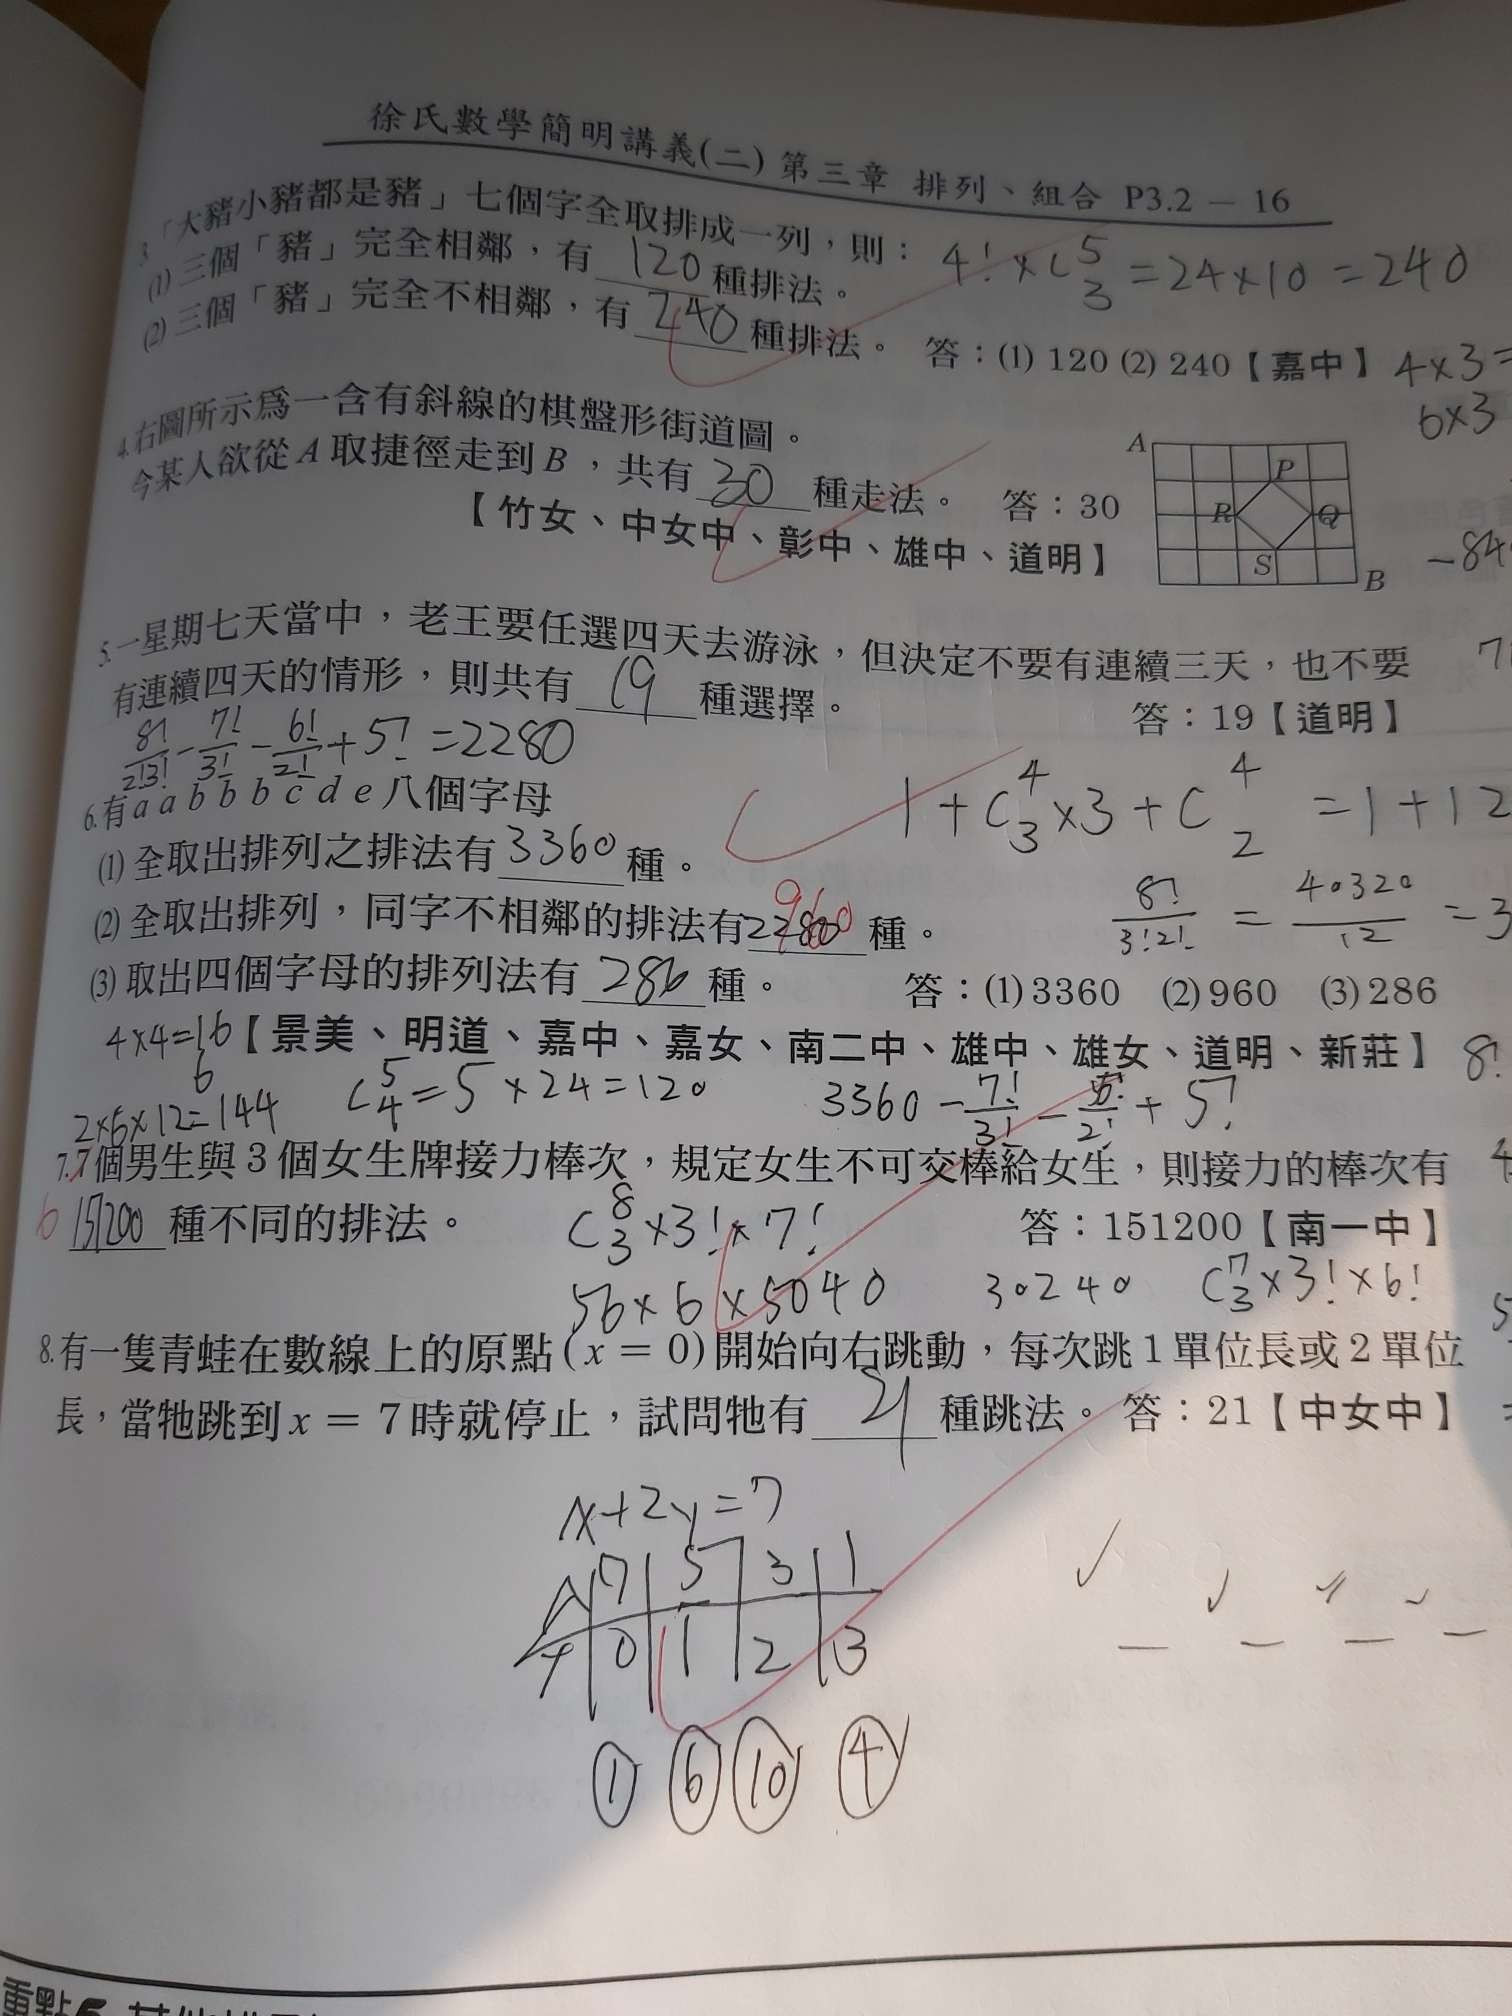 徐氏數學簡明講義(二) 第三章 排列、組合 P3.2 － 16
3.「大豬小豬都是豬」七個字全取排成一列，則：
4! × C 5 3 = 24 × 10 = 240
(1) 三個「豬」完全相鄰，有 120 種排法。
(2) 三個「豬」完全不相鄰，有 240 種排法。 答：(1) 120 (2) 240【嘉中】
4×3=
6×3
4.右圖所示爲一含有斜線的棋盤形街道圖。
今某人欲從 A 取捷徑走到 B ，共有 30 種走法。 答：30
【竹女、中女中、彰中、雄中、道明】
A
P
R
Q
S
B
-84
5.一星期七天當中，老王要任選四天去游泳，但決定不要有連續三天，也不要
有連續四天的情形，則共有 19 種選擇。 答：19【道明】
8!/2!3! - 7!/3! - 6!/2! + 5! = 2280
1 + C 4 3 × 3 + C 4 2 = 1 + 12
6.有 a a b b b c d e 八個字母
(1) 全取出排列之排法有 3360 種。
8!/3!2! = 40320/12 = 3
(2) 全取出排列，同字不相鄰的排法有 2280 960 種。
(3) 取出四個字母的排列法有 286 種。 答：(1) 3360 (2) 960 (3) 286
4×4=16【景美、明道、嘉中、嘉女、南二中、雄中、雄女、道明、新莊】 8!
6
2×6×12=144
C 5 4 = 5 × 24 = 120
3360 - 7!/3! - 6!/2! + 5!
7.7個男生與 3 個女生牌接力棒次，規定女生不可交棒給女生，則接力的棒次有
6 151200 種不同的排法。 答：151200【南一中】
C 8 3 × 3! × 7!
56 × 6 × 5040
30240
C 7 3 × 3! × 6!
8.有一隻青蛙在數線上的原點 ( x = 0 ) 開始向右跳動，每次跳 1 單位長或 2 單位
長，當牠跳到 x = 7 時就停止，試問牠有 21 種跳法。 答：21【中女中】
x+2y=7
x 7 5 3 1
y 0 1 2 3
① ⑥ ⑩ ④